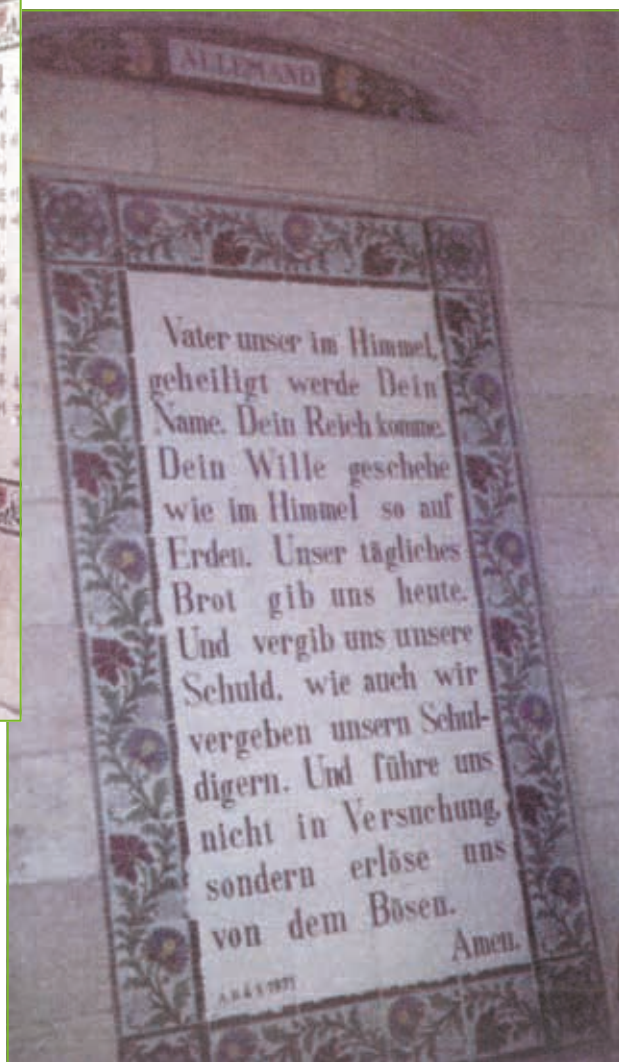 ALLEMAND
Vater unser im Himmel,
geheiligt werde Dein
Name. Dein Reich komme.
Dein Wille geschehe
wie im Himmel so auf
Erden. Unser tägliches
Brot gib uns heute.
Und vergib uns unsere
Schuld, wie auch wir
vergeben unsern Schul-
digern. Und führe uns
nicht in Versuchung,
sondern erlöse uns
von dem Bösen.
Amen.